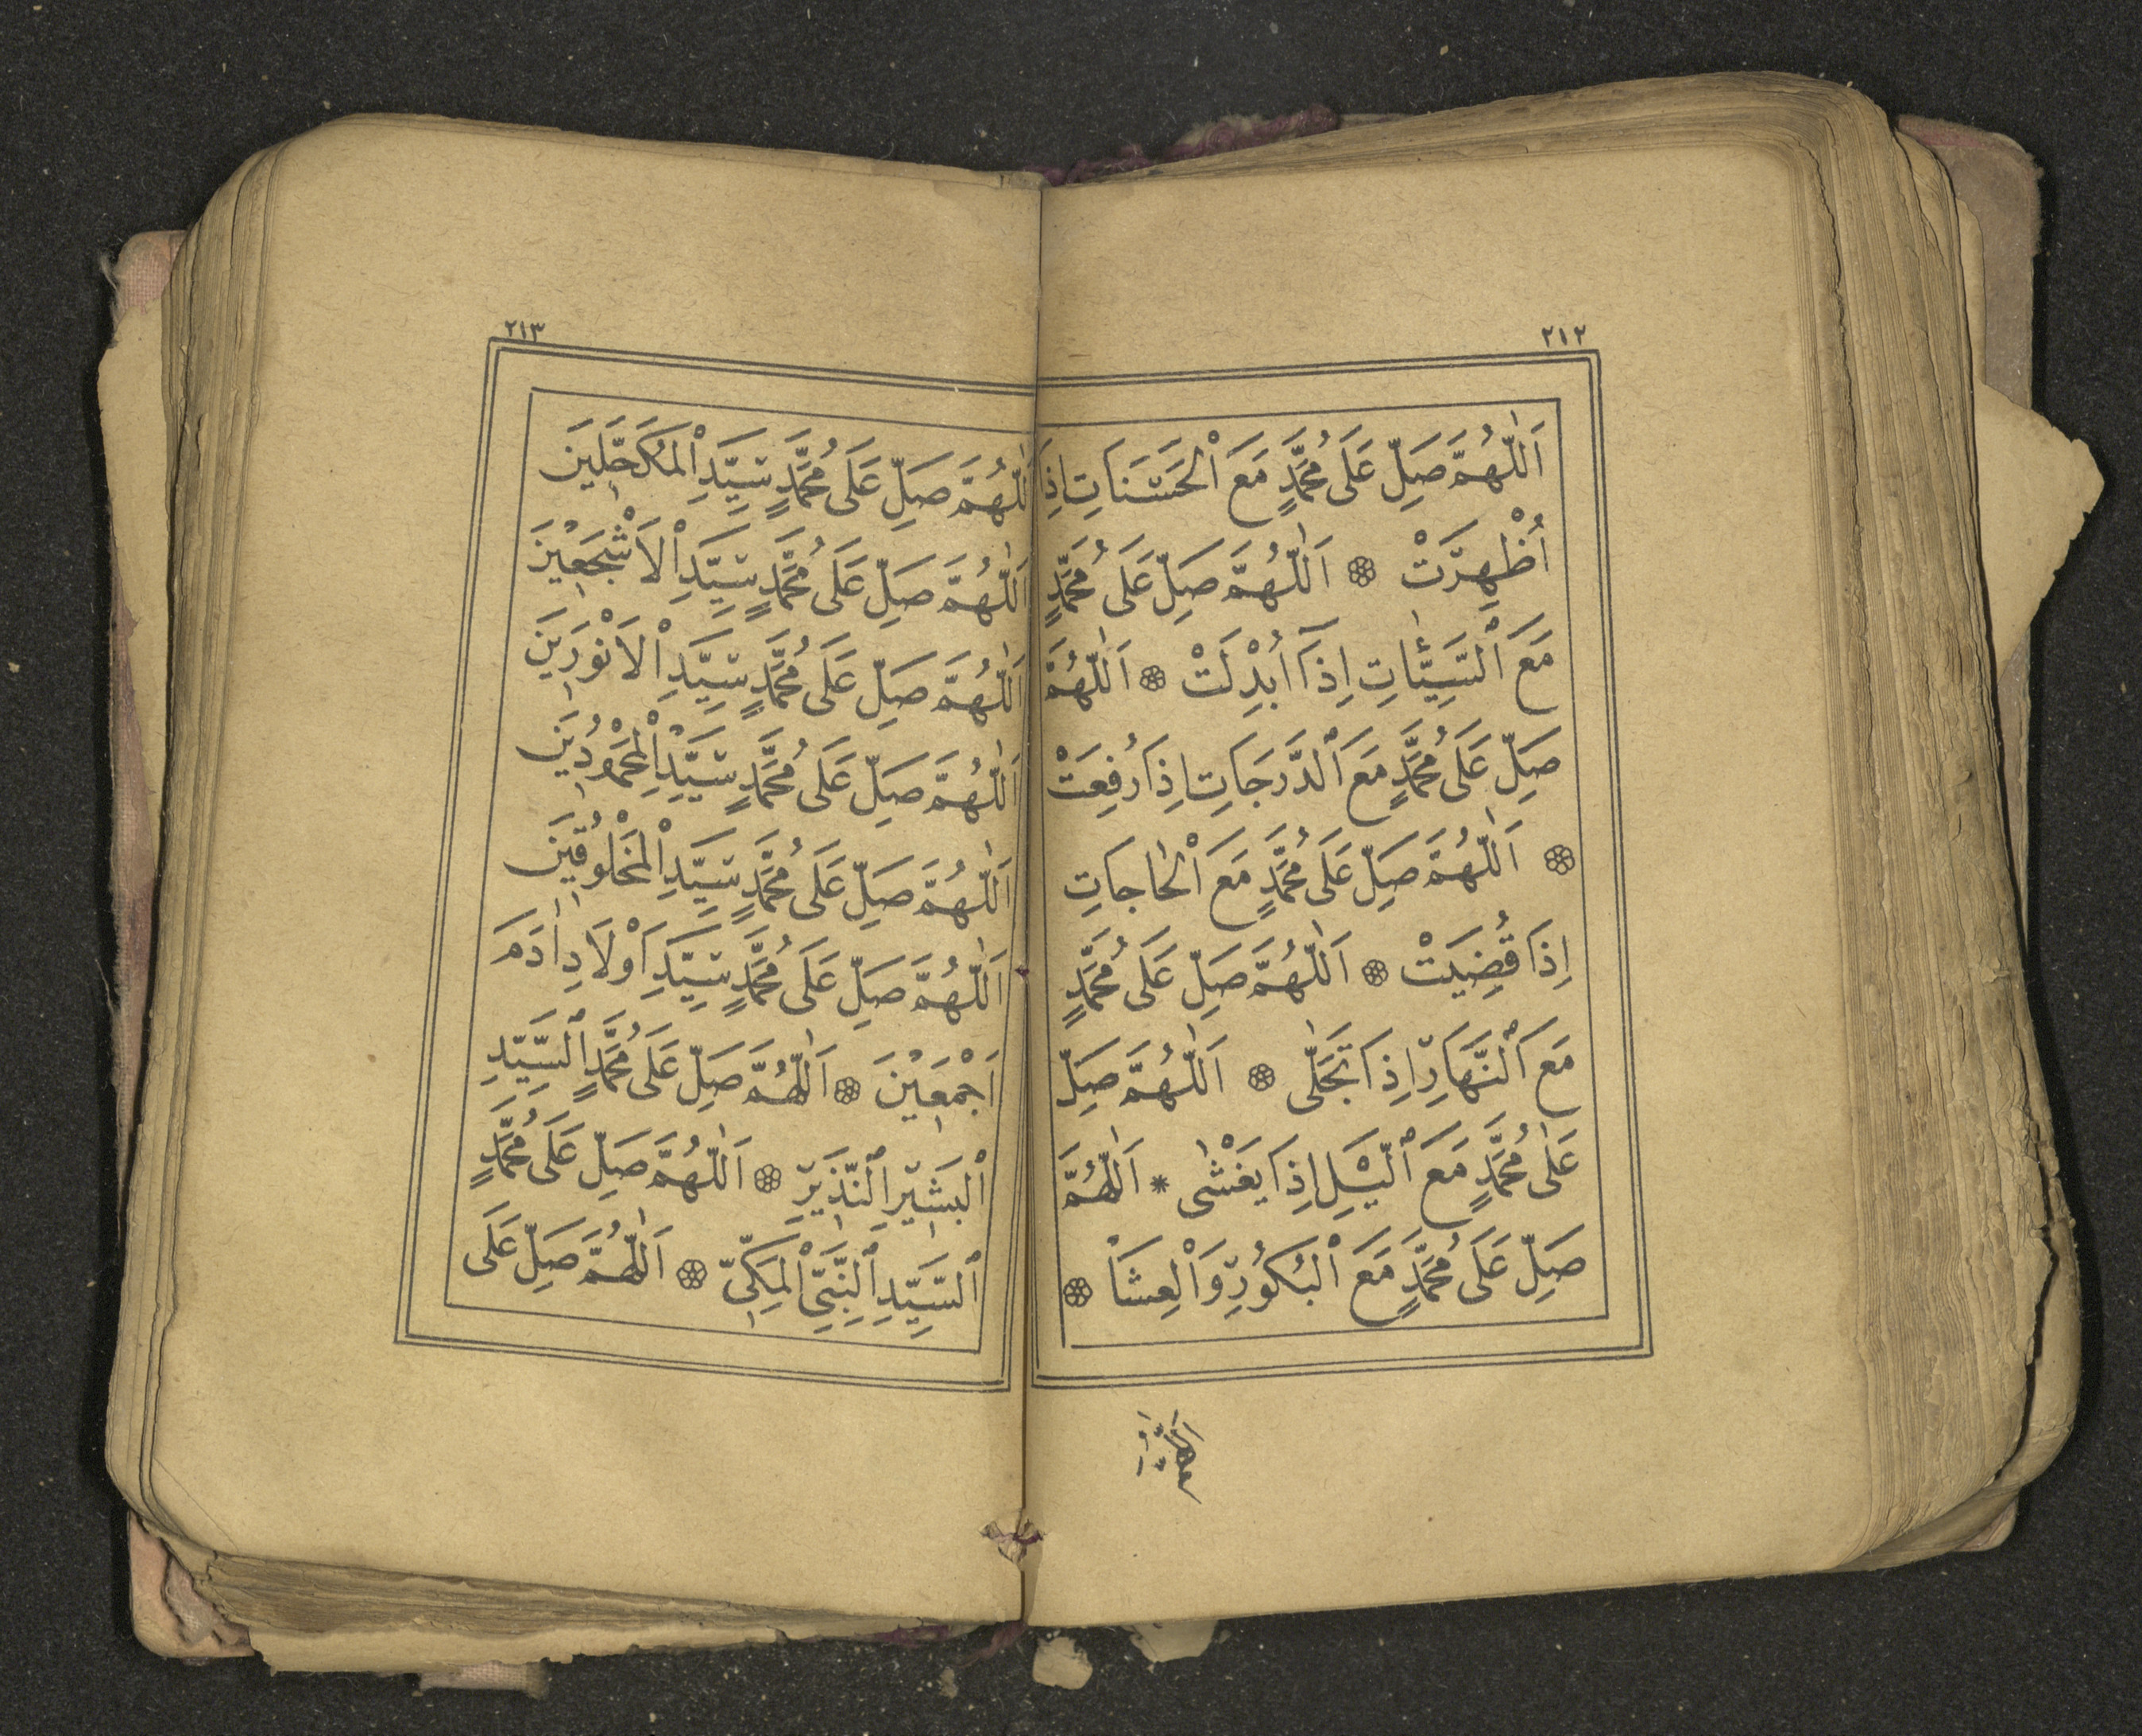 ٢١٢
اَللّٰهُمَّ صَلِّ عَلَى مُحَمَّدٍ مَعَ الْحَسَنَاتِ اِذَا
اُظْهِرَتْ ۞ اَللّٰهُمَّ صَلِّ عَلَى مُحَمَّدٍ
مَعَ السَّيِّئَاتِ اِذَا اُبْدِلَتْ ۞ اَللّٰهُمَّ
صَلِّ عَلَى مُحَمَّدٍ مَعَ الدَّرَجَاتِ اِذَا رُفِعَتْ
۞ اَللّٰهُمَّ صَلِّ عَلَى مُحَمَّدٍ مَعَ الْحَاجَاتِ
اِذَا قُضِيَتْ ۞ اَللّٰهُمَّ صَلِّ عَلَى مُحَمَّدٍ
مَعَ النَّهَارِ اِذَا تَجَلّٰى ۞ اَللّٰهُمَّ صَلِّ
عَلٰى مُحَمَّدٍ مَعَ الَّيْلِ اِذَا يَغْشٰى * اَللّٰهُمَّ
صَلِّ عَلَى مُحَمَّدٍ مَعَ الْبُكُورِ وَالْعِشَاْ ۞
٢١٣
اَللّٰهُمَّ صَلِّ عَلَى مُحَمَّدٍ سَيِّدِ الْمُكَحَّلِينَ
اَللّٰهُمَّ صَلِّ عَلَى مُحَمَّدٍ سَيِّدِ الْاَشْجَعِيْنَ
اَللّٰهُمَّ صَلِّ عَلَى مُحَمَّدٍ سَيِّدِ الْاَنْوَرِينَ
اَللّٰهُمَّ صَلِّ عَلَى مُحَمَّدٍ سَيِّدِ الْمَحْمُودِيْنَ
اَللّٰهُمَّ صَلِّ عَلَى مُحَمَّدٍ سَيِّدِ الْمَخْلُوقِيْنَ
اَللّٰهُمَّ صَلِّ عَلَى مُحَمَّدٍ سَيِّدِ اَوْلَادِ اٰدَمَ
اَجْمَعِيْنَ ۞ اَللّٰهُمَّ صَلِّ عَلَى مُحَمَّدٍ السَّيِّدِ
الْبَشِيْرِ النَّذِيرِ ۞ اَللّٰهُمَّ صَلِّ عَلَى مُحَمَّدٍ
السَّيِّدِ النَّبِيِّ الْمَكِّيِّ ۞ اَللّٰهُمَّ صَلِّ عَلَى